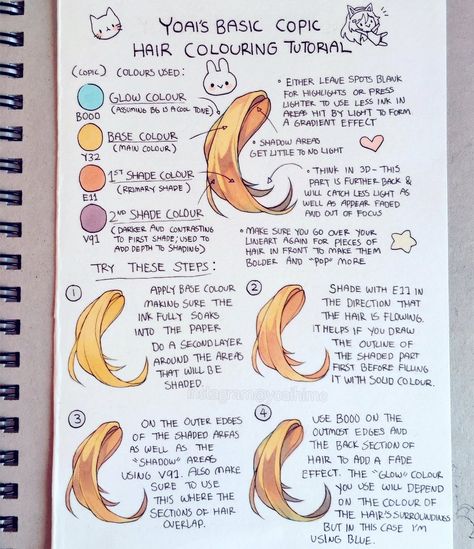 YOAI'S BASIC COPIC
HAIR COLOURING TUTORIAL
(COPIC) COLOURS USED:
B000
GLOW COLOUR
(ASSUMING BG IS A COOL TONE)
Y32
BASE COLOUR
(MAIN COLOUR)
E11
1ST SHADE COLOUR
(PRIMARY SHADE)
V91
2ND SHADE COLOUR
(DARKER AND CONTRASTING
TO FIRST SHADE; USED TO
ADD DEPTH TO SHADING)
• EITHER LEAVE SPOTS BLANK
FOR HIGHLIGHTS OR PRESS
LIGHTER TO USE LESS INK IN
AREAS HIT BY LIGHT TO FORM
A GRADIENT EFFECT
• SHADOW AREAS
GET LITTLE TO NO LIGHT
• THINK IN 3D - THIS
PART IS FURTHER BACK &
WILL CATCH LESS LIGHT AS
WELL AS APPEAR FADED
AND OUT OF FOCUS
• MAKE SURE YOU GO OVER YOUR
LINEART AGAIN FOR PIECES OF
HAIR IN FRONT TO MAKE THEM
BOLDER AND "POP" MORE
TRY THESE STEPS:
1
APPLY BASE COLOUR
MAKING SURE THE
INK FULLY SOAKS
INTO THE PAPER
DO A SECOND LAYER
AROUND THE AREAS
THAT WILL BE
SHADED.
2
SHADE WITH E11 IN
THE DIRECTION THAT
THE HAIR IS FLOWING.
IT HELPS IF YOU DRAW
THE OUTLINE OF
THE SHADED PART
FIRST BEFORE FILLING
IT WITH SOLID COLOUR.
instagram@yoaihime
3
ON THE OUTER EDGES
OF THE SHADED AREAS
AS WELL AS THE
"SHADOW" AREAS
USING V91. ALSO MAKE
SURE TO USE
THIS WHERE THE
SECTIONS OF HAIR
OVERLAP.
4
USE B000 ON THE
OUTMOST EDGES AND
THE BACK SECTION OF
HAIR TO ADD A FADE
EFFECT. THE "GLOW" COLOUR
YOU USE WILL DEPEND
ON THE COLOUR OF
THE HAIR'S SURROUNDINGS
BUT IN THIS CASE I'M
USING BLUE.